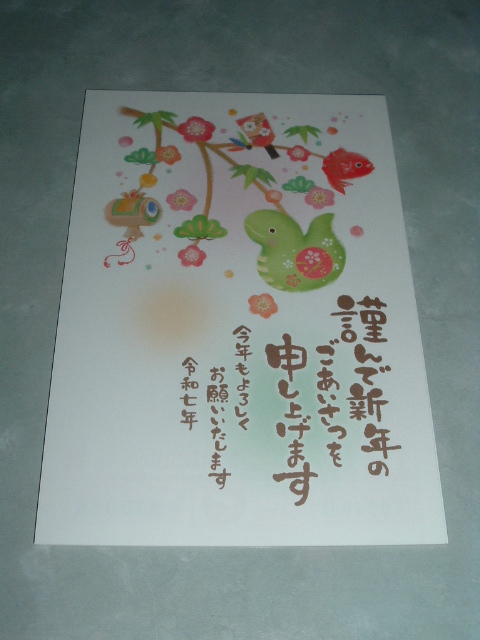 謹んで新年の
ごあいさつを
申し上げます
今年もよろしく
お願いいたします
令和七年